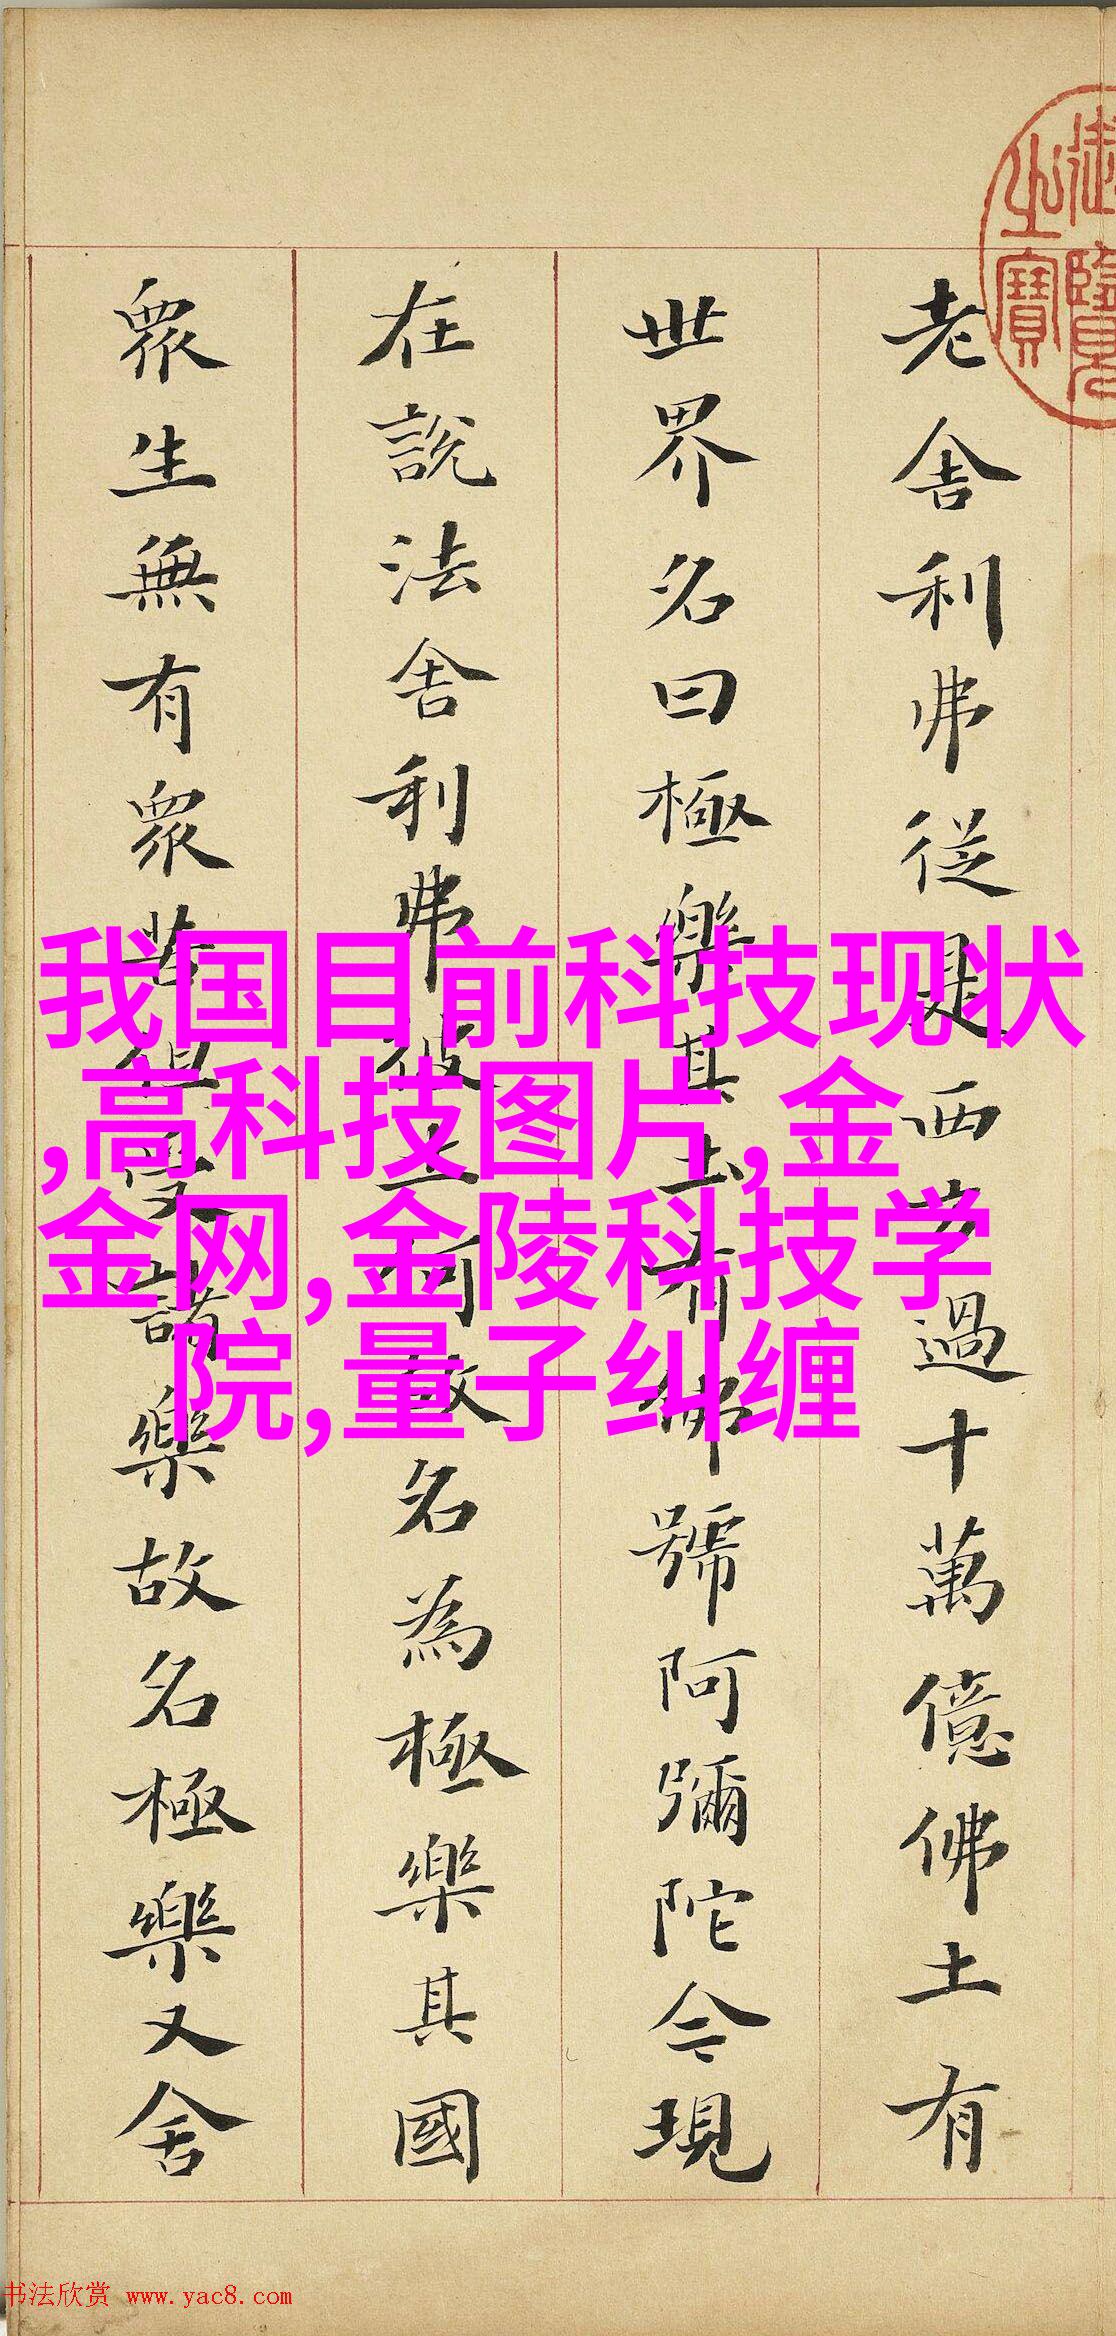 御覽
之寶
老舍利弗從是西方過十萬億佛土有
世界名曰極樂其土有佛號阿彌陀今現
在說法舍利弗彼土何故名為極樂其國
眾生無有眾苦但受諸樂故名極樂又舍
我国目前科技现状
,高科技图片,金
金网,金陵科技学
院,量子纠缠
书法欣赏 www.yac8.com